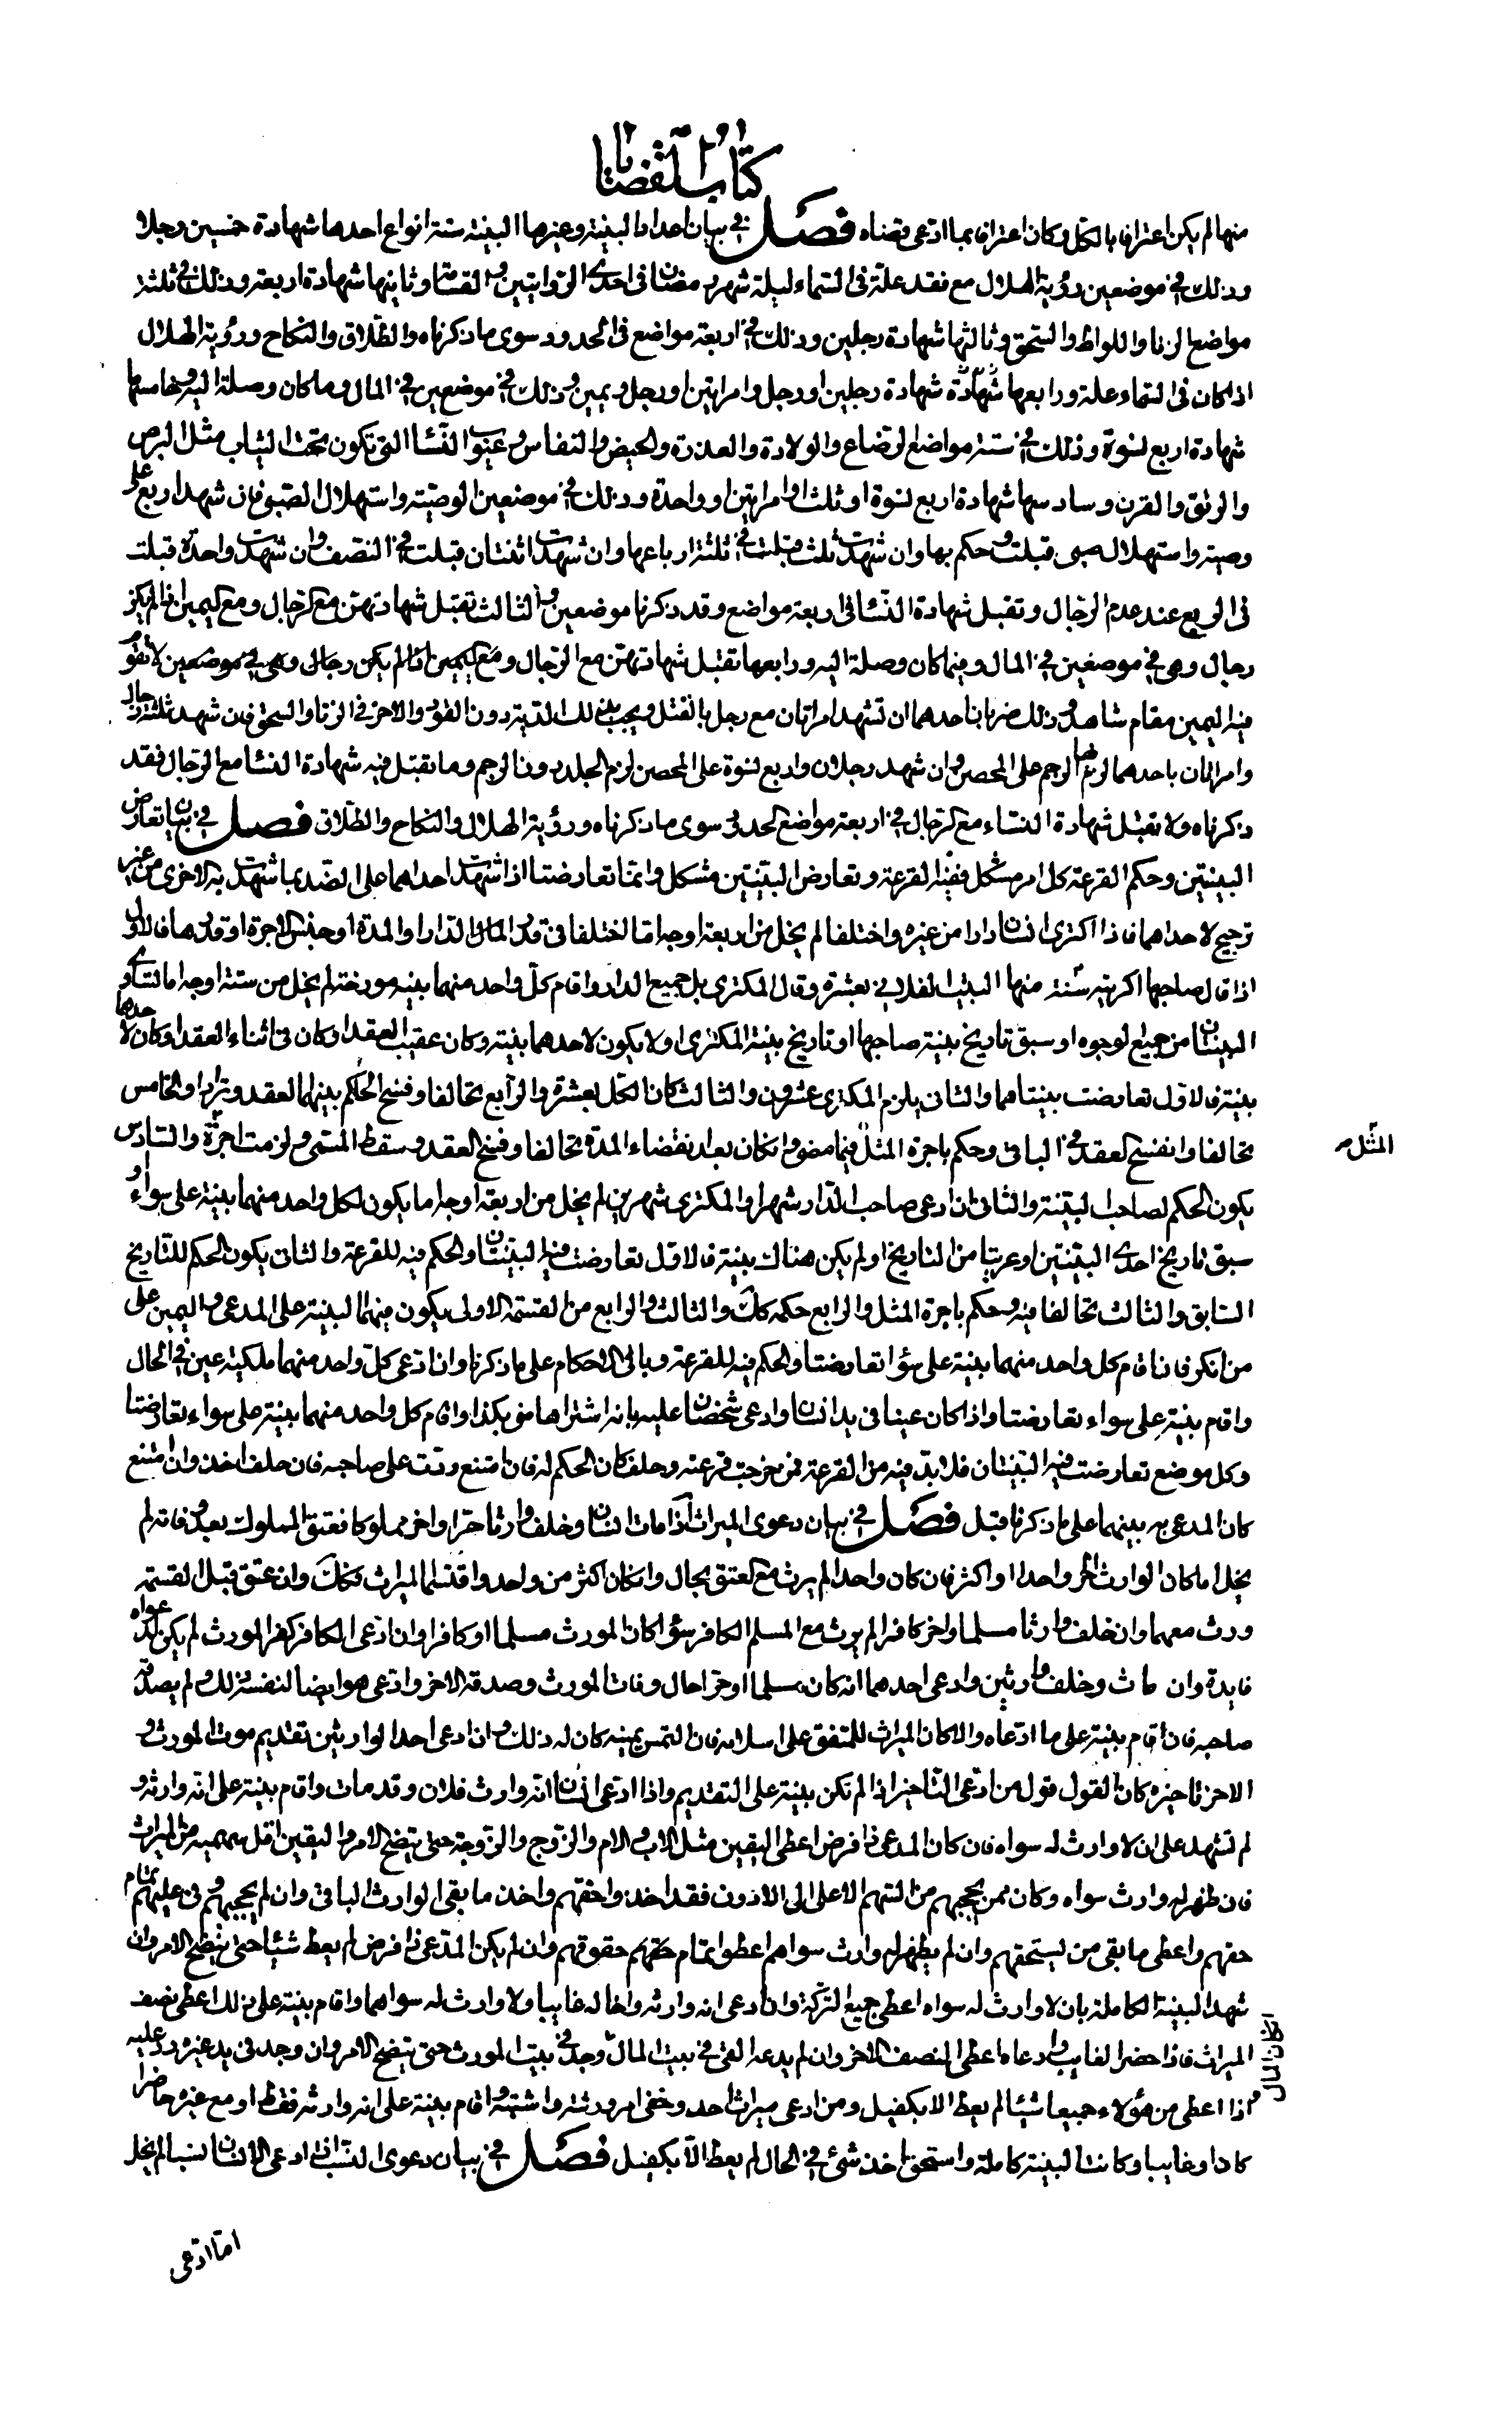 كتاب القضايا
منها لم يكن اعترافا بالكل وكان اعترافا بما ادعى قضاه فصل في بيان اعداد البينة وغيرها البينة ستة انواع احدها شهادة خمسين رجلا
وذلك في موضعين رؤية الهلال مع فقد علة في السماء ليلة شهر رمضان في احدى الروايتين والقسامة وثانيها شهادة اربعة وذلك في ثلثة
مواضع الزنا واللواط والسحق وثالثها شهادة رجلين وذلك في اربعة مواضع في الحدود سوى ما ذكرناه والطلاق والنكاح ورؤية الهلال
اذا كان في السماء علة ورابعها شهادة شهادة رجلين او رجل وامراتين او رجل ويمين وذلك في موضعين في المال وما كان وصلة اليه وخامسها
شهادة اربع نسوة وذلك في ستة مواضع الرضاع والولادة والعذرة والحيض والنفاس وعيوب النساء التي تكون تحت الثياب مثل البرص
والرتق والقرن وسادسها شهادة اربع نسوة او ثلث او امراتين او واحدة وذلك في موضعين الوصية واستهلال الصبي فان شهد اربع على
وصية واستهلال صبي قبلت وحكم بها وان شهدت ثلث قبلت في ثلثة ارباعها وان شهدت اثنتان قبلت في النصف وان شهدت واحدة قبلت
في الربع عند عدم الرجال وتقبل شهادة النساء في اربعة مواضع وقد ذكرنا موضعين والثالث تقبل شهادتهن مع الرجال ومع اليمين اذا لم يكن
رجال وهي في موضعين في المال وفيما كان وصلة اليه ورابعها تقبل شهادتهن مع الرجال ومع اليمين اذا لم يكن رجال وهي في موضعين لا تقوم
فيه اليمين مقام شاهد وذلك ضربان احدهما ان تشهد امراتان مع رجل بالقتل ويجب بذلك الدية دون القود والاخر في الزنا والسحق فان شهد ثلثة رجال
وامراتان باحدهما لزم الرجم على المحصن وان شهد رجلان واربع نسوة على المحصن لزم الجلد دون الرجم وما تقبل فيه شهادة النساء مع الرجال فقد
ذكرناه ولا تقبل شهادة النساء مع الرجال في اربعة مواضع الحدود سوى ما ذكرناه ورؤية الهلال والنكاح والطلاق فصل في بيان تعارض
البينتين وحكم القرعة كل امر مشكل ففيه القرعة وتعارض البينتين مشكل وانما تعارضتا اذا شهدت احداهما على الضد بما شهدت به الاخرى من غير
ترجيح لاحداهما فاذا اكترى انسان دارا من غيره واختلفا لم يخل من اربعة اوجه اما اختلفا في قدر المال او الدار او المدة او جنس الاجرة او قدرها فالاول
اذا قال صاحبها اكريته سنة منها البيت الفلاني بعشرة وقال المكتري بل جميع الدار واقام كل واحد منهما بينة مورخة لم يخل من ستة اوجه اما تساوى
البينتان من جميع الوجوه او سبق تاريخ بينة صاحبها او تاريخ بينة المكترى او لا يكون لاحدهما بينة وكان عقيب العقد او كان في اثناء العقد او كان لاحدهما
بينة فالاول تعارضت بينتاهما والثاني يلزم المكتري عشرون والثالث كان الكل بعشرة والرابع تحالفا وفسخ الحكم بينهما العقد وترادا والخامس
تحالفا وانفسخ العقد في الباقي وحكم باجرة المثل فيما مضى وان كان بعد انقضاء المدة تحالفا وفسخ العقد وسقط المسمى ولزمت اجرة والسادس
المثل
يكون الحكم لصاحب البينة والثاني ان ادعى صاحب الدار شهرا والمكترى شهرين لم يخل من اربعة اوجه اما يكون لكل واحد منهما بينة على سواء او
سبق تاريخ احدى البينتين او عريتا من التاريخ او لم يكن هناك بينة فالاول تعارضت فيه البينتان والحكم فيه للقرعة والثاني يكون الحكم للتاريخ
السابق والثالث تحالفا فيه وحكم باجرة المثل والرابع حكمه كذلك والثالث والرابع من القسمة الاولى يكون فيهما البينة على المدعى واليمين على
من انكر فان اقام كل واحد منهما بينة على سواء تعارضتا والحكم فيه للقرعة وباقي الاحكام على ما ذكرنا وان ادعى كل واحد منهما ملكية عين في الحال
واقام بينة على سواء تعارضتا واذا كان عينا في يد انسان وادعى شخصان عليه بانه اشتراها مني بكذا واقام كل واحد منهما بينة على سواء تعارضتا
وكل موضع تعارضت فيه البينتان فلا بد فيه من القرعة فمن خرجت قرعته وحلف كان الحكم له فان امتنع ردت على صاحبه فان حلف اخذ وان امتنع
كان المدعى به بينهما على ما ذكرنا قبل فصل في بيان دعوى الميراث اذا مات انسان وخلف وارثا حرا واخر مملوكا فعتق المملوك بعد وفاته لم
يخل اما كان الوارث الحر واحدا او اكثر فان كان واحدا لم يرث مع العتق بحال وان كان اكثر من واحد واقتسما الميراث فكذلك وان عتق قبل القسمة
ورث معهما وان خلف وارثا مسلما واخر كافرا لم يرث مع المسلم الكافر سواء كان المورث مسلما او كافرا وان ادعى الكافر كفر المورث لم يكن لدعواه
فايدة وان مات وخلف وارثين وادعى احدهما انه كان مسلما او حرا حال وفاة المورث وصدقه الاخر وادعى هو ايضا لنفسه ذلك ولم يصدقه
صاحبه فان اقام بينة على ما ادعاه والا كان الميراث للمتفق على اسلامه فان التمس يمينه كان له ذلك وان ادعى احد الوارثين تقديم موت المورث و
الاخر تاخيره كان القول قول من ادعى التاخير اذا لم تكن بينة على التقديم واذا ادعى انسان انه وارث فلان وقد مات واقام بينة على انه وارثه و
لم تشهد على ان لا وارث له سواه فان كان المدعى ذا فرض اعطى اليقين مثل الاب والام والزوج والزوجة حتى يتضح الامر واليقين اقل سهميه من الميراث
فان ظهر له وارث سواه وكان ممن يحجبهم من السهم الاعلى الى الادون فقد اخذوا حقهم واخذ ما بقى الوارث الباقي وان لم يحجبهم وفى عليهم تمام
حقهم واعطى ما بقى من يستحقهم وان لم يظهر له وارث سواهم اعطوا تمام حقهم حقوقهم وان لم يكن المدعى ذا فرض لم يعط شيئا حتى يتضح الامر وان
شهد البينة الكاملة بان لا وارث له سواه اعطى جميع التركة وان ادعى انه وارثه واخا له غايبا ولا وارث له سواهما واقام بينة على ذلك اعطى نصف
الميراث فاذا حضر الغايب وادعاه اعطى النصف الاخر وان لم يدعه القى في بيت المال وجد في بيت المورث حتى يتضح الامر وان وجد في يد غيره رد عليه
ان كان المال
فاذا اعطى من هؤلاء جميعا شيئا لم يعط الا بكفيل ومن ادعى ميراث احد وخفى امر ورثته واشتبه واقام بينة على انه وارثه فقط او مع غيره حاضرا
كان او غايبا وكانت البينة كاملة واستحق اخذ شئ في الحال لم يعط الا بكفيل فصل في بيان دعوى النسب اذا ادعى الانسان نسبا لم يخل
اما ادعى